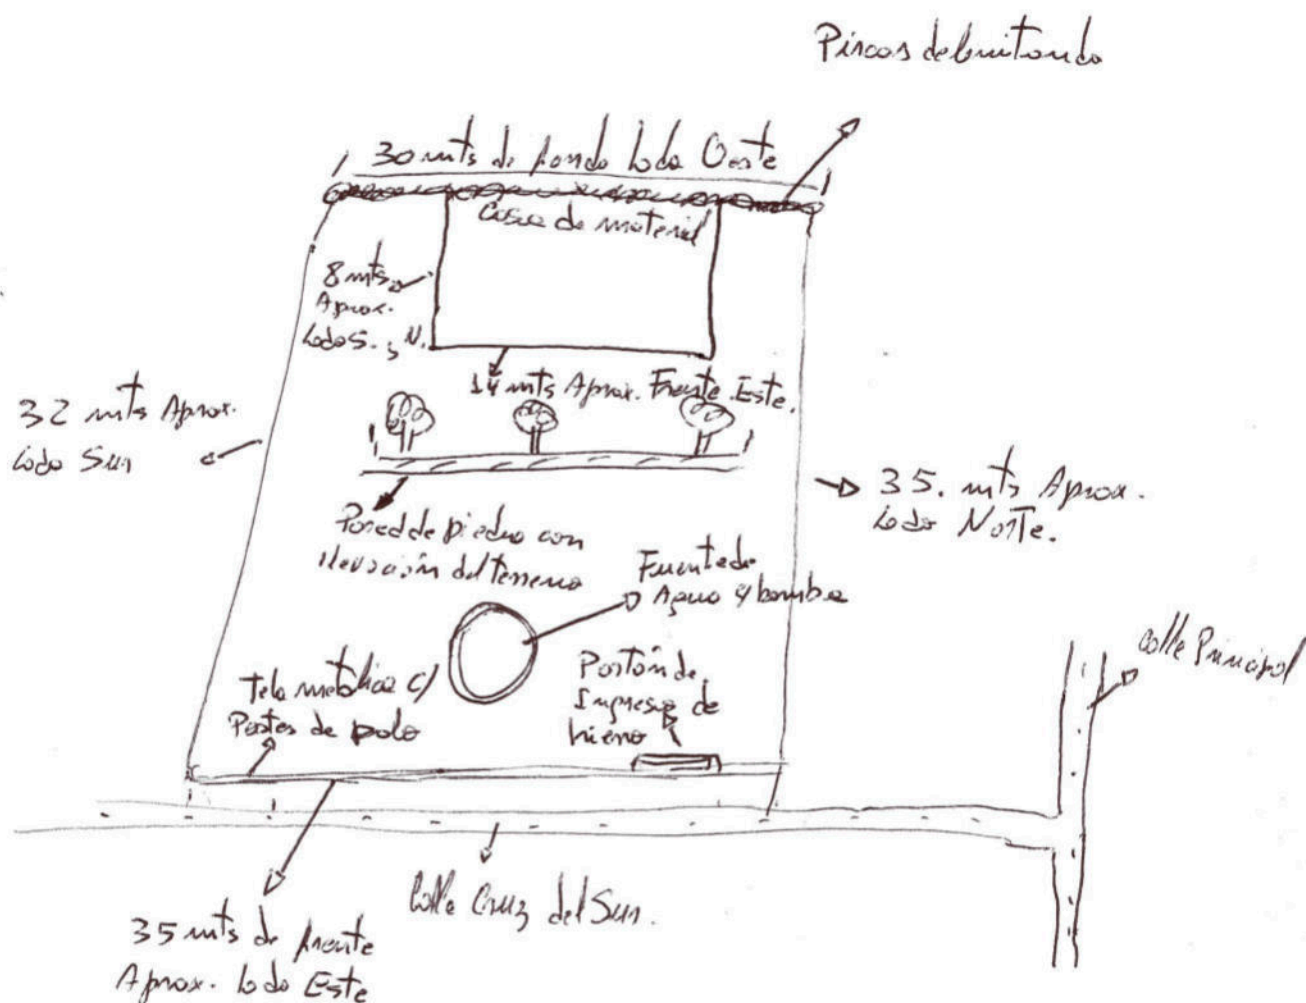 Pircas delimitando
30 mts de fondo lado Oeste
Casa de material
8 mts
Aprox.
lado S. y N.
14 mts Aprox. Frente Este.
32 mts Aprox.
lado Sur
35. mts Aprox.
lado Norte.
Pared de piedra con
elevación del terreno
Fuente de
Agua y bomba
Calle Principal
Tela metálica c/
Postes de palo
Portón de
Ingreso de
hierro
Calle Cruz del Sur.
35 mts de frente
Aprox. lado Este